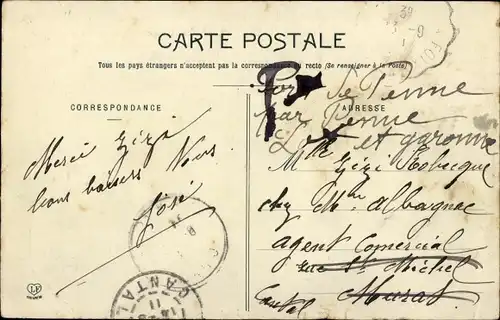 CARTE POSTALE
Tous les pays étrangers n'acceptent pas la correspondance au recto (Se renseigner à la Poste)
CORRESPONDANCE
ADRESSE
Port de Penne
par Penne
Lot et garonne
Merci Zizi
bons baisers
José
Mlle Zizi Robecque
chez Mme Albagnac
agent Comercial
rue St Michel
Murat
Cantal
CANTAL
11